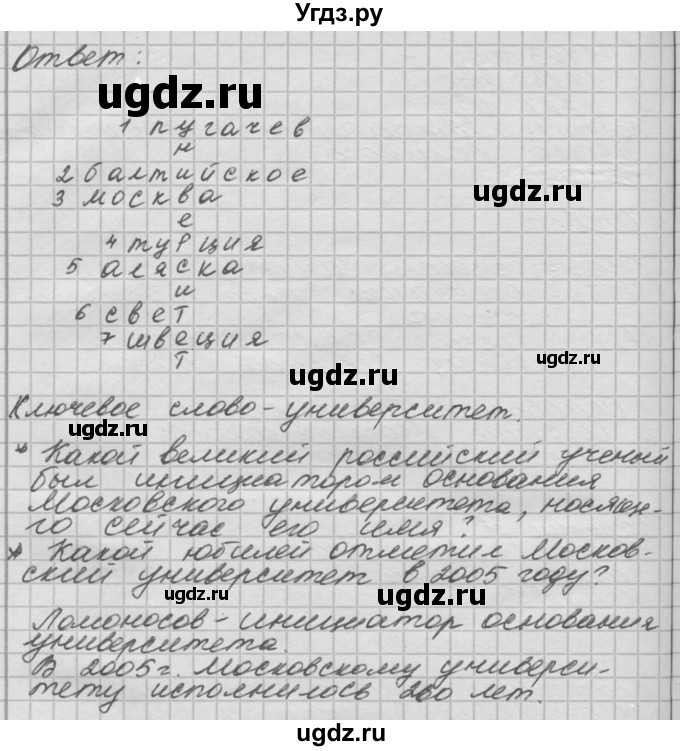 Угдз.ру
Ответ:
ugdz.ru
1 пугачев
н
2 балтийское
3 москва
ugdz.ru
е
4 турция
5 аляска
ugdz.ru
и
6 свет
7 швеция
ugdz.ru
т
ugdz.ru
Ключевое слово - университет.
ugdz.ru
* Какой великий российский ученый
был инициатором основания
Московского университета, носяще-
го сейчас его имя?
* Какой юбилей отметил Москов-
ский университет в 2005 году?
ugdz.ru
ugdz.ru
Ломоносов - инициатор основания
университета.
В 2005г. Московскому универси-
тету исполнилось 260 лет.
ugdz.ru
ugdz.ru